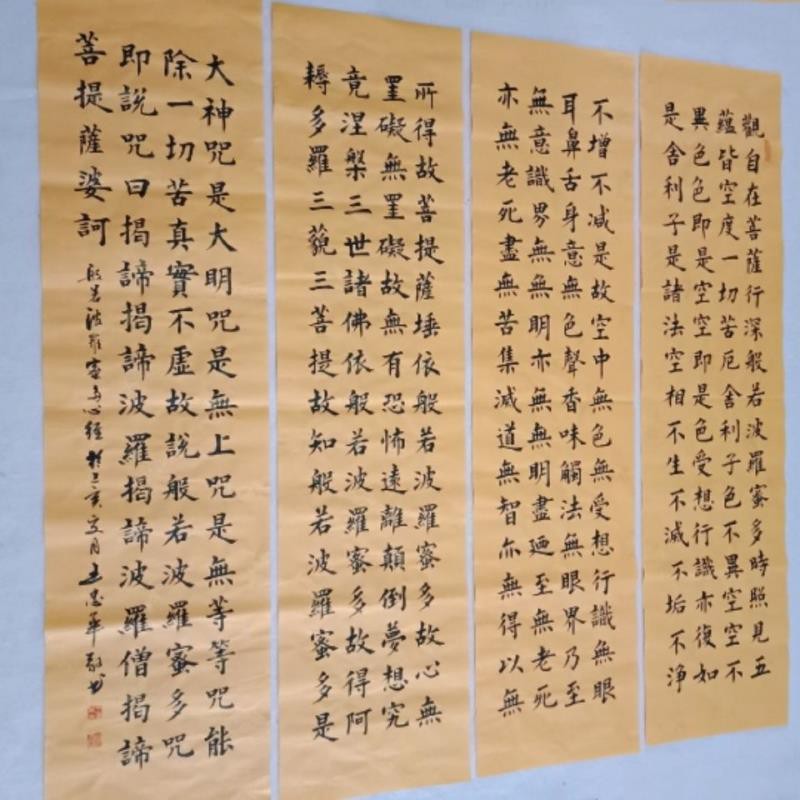 觀自在菩薩行深般若波羅蜜多時照見五
蘊皆空度一切苦厄舍利子色不異空空不
異色色即是空空即是色受想行識亦復如
是舍利子是諸法空相不生不滅不垢不淨
不增不減是故空中無色無受想行識無眼
耳鼻舌身意無色聲香味觸法無眼界乃至
無意識界無無明亦無無明盡迺至無老死
亦無老死盡無苦集滅道無智亦無得以無
所得故菩提薩埵依般若波羅蜜多故心無
罣礙無罣礙故無有恐怖遠離顛倒夢想究
竟涅槃三世諸佛依般若波羅蜜多故得阿
耨多羅三藐三菩提故知般若波羅蜜多是
大神咒是大明咒是無上咒是無等等咒能
除一切苦真實不虛故說般若波羅蜜多咒
即說咒曰揭諦揭諦波羅揭諦波羅僧揭諦
菩提薩婆訶
般若波羅蜜多心經 於己亥 月 敬書